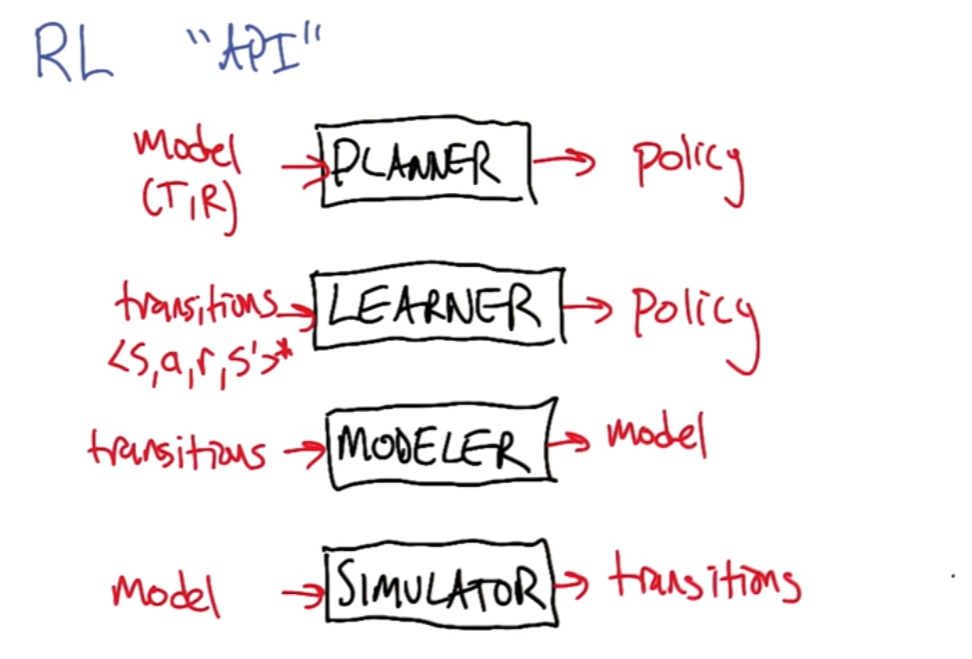 RL "API"
model → PLANNER → policy
(T,R)
transitions → LEARNER → policy
<s,a,r,s'>*
transitions → MODELER → model
model → SIMULATOR → transitions